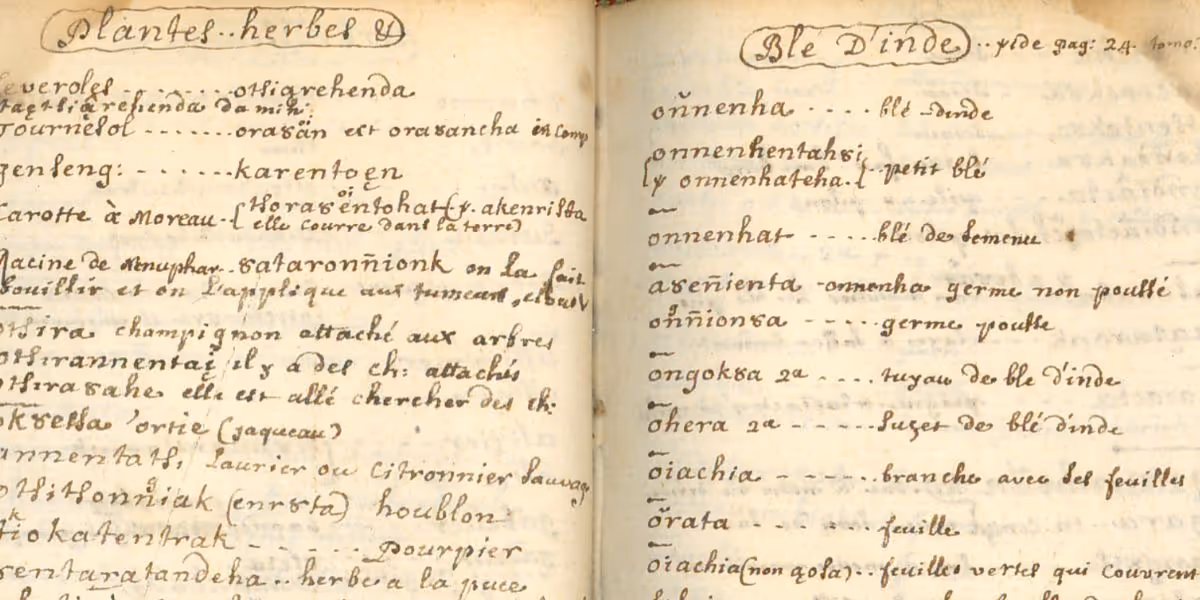 Plantes.. herbes &
feveroles - - - - - - - otsiqrehenda
Tournesol - - - - - - - orasan est orasancha in Comp
genseng: - - - - - - karentoen
Carotte à Moreau - { thorasentohat (y. akenrista
elle courre dans la terre)
Racine de Nenuphar.. sataronñionk on la fait
bouillir et on l'applique aux tumeurs
othira champignon attaché aux arbres
othirannentaį il y a des ch: attachés
othirasahe elle est allé chercher des ch:
oksessa ortie (jaqueau)
annentatsi Laurier ou Citronnier Sauvage
othithonniak (enrsta) houblon
tiokatentrak - - - - - Pourpier
sentaratandeha.. herbe a la puce
Blé D'inde .. vide pag: 24. tomo.
onnenha - - - - - blé d'inde
onnenhentahsi
y onnenhateha. } petit blé
onnenhat - - - - - blé de semence
aseñienta -onnenha germe non poussé
oññionsa - - - - - germe pousse
ongoksa 2a - - - - tuyau de ble d'inde
ohera 2a - - - - - - de blé d'inde
oiachia - - - - - - branche avec des feuilles
orata - - - - - - - feuille
oiachia (non gosa) .. feuilles vertes qui couvrent